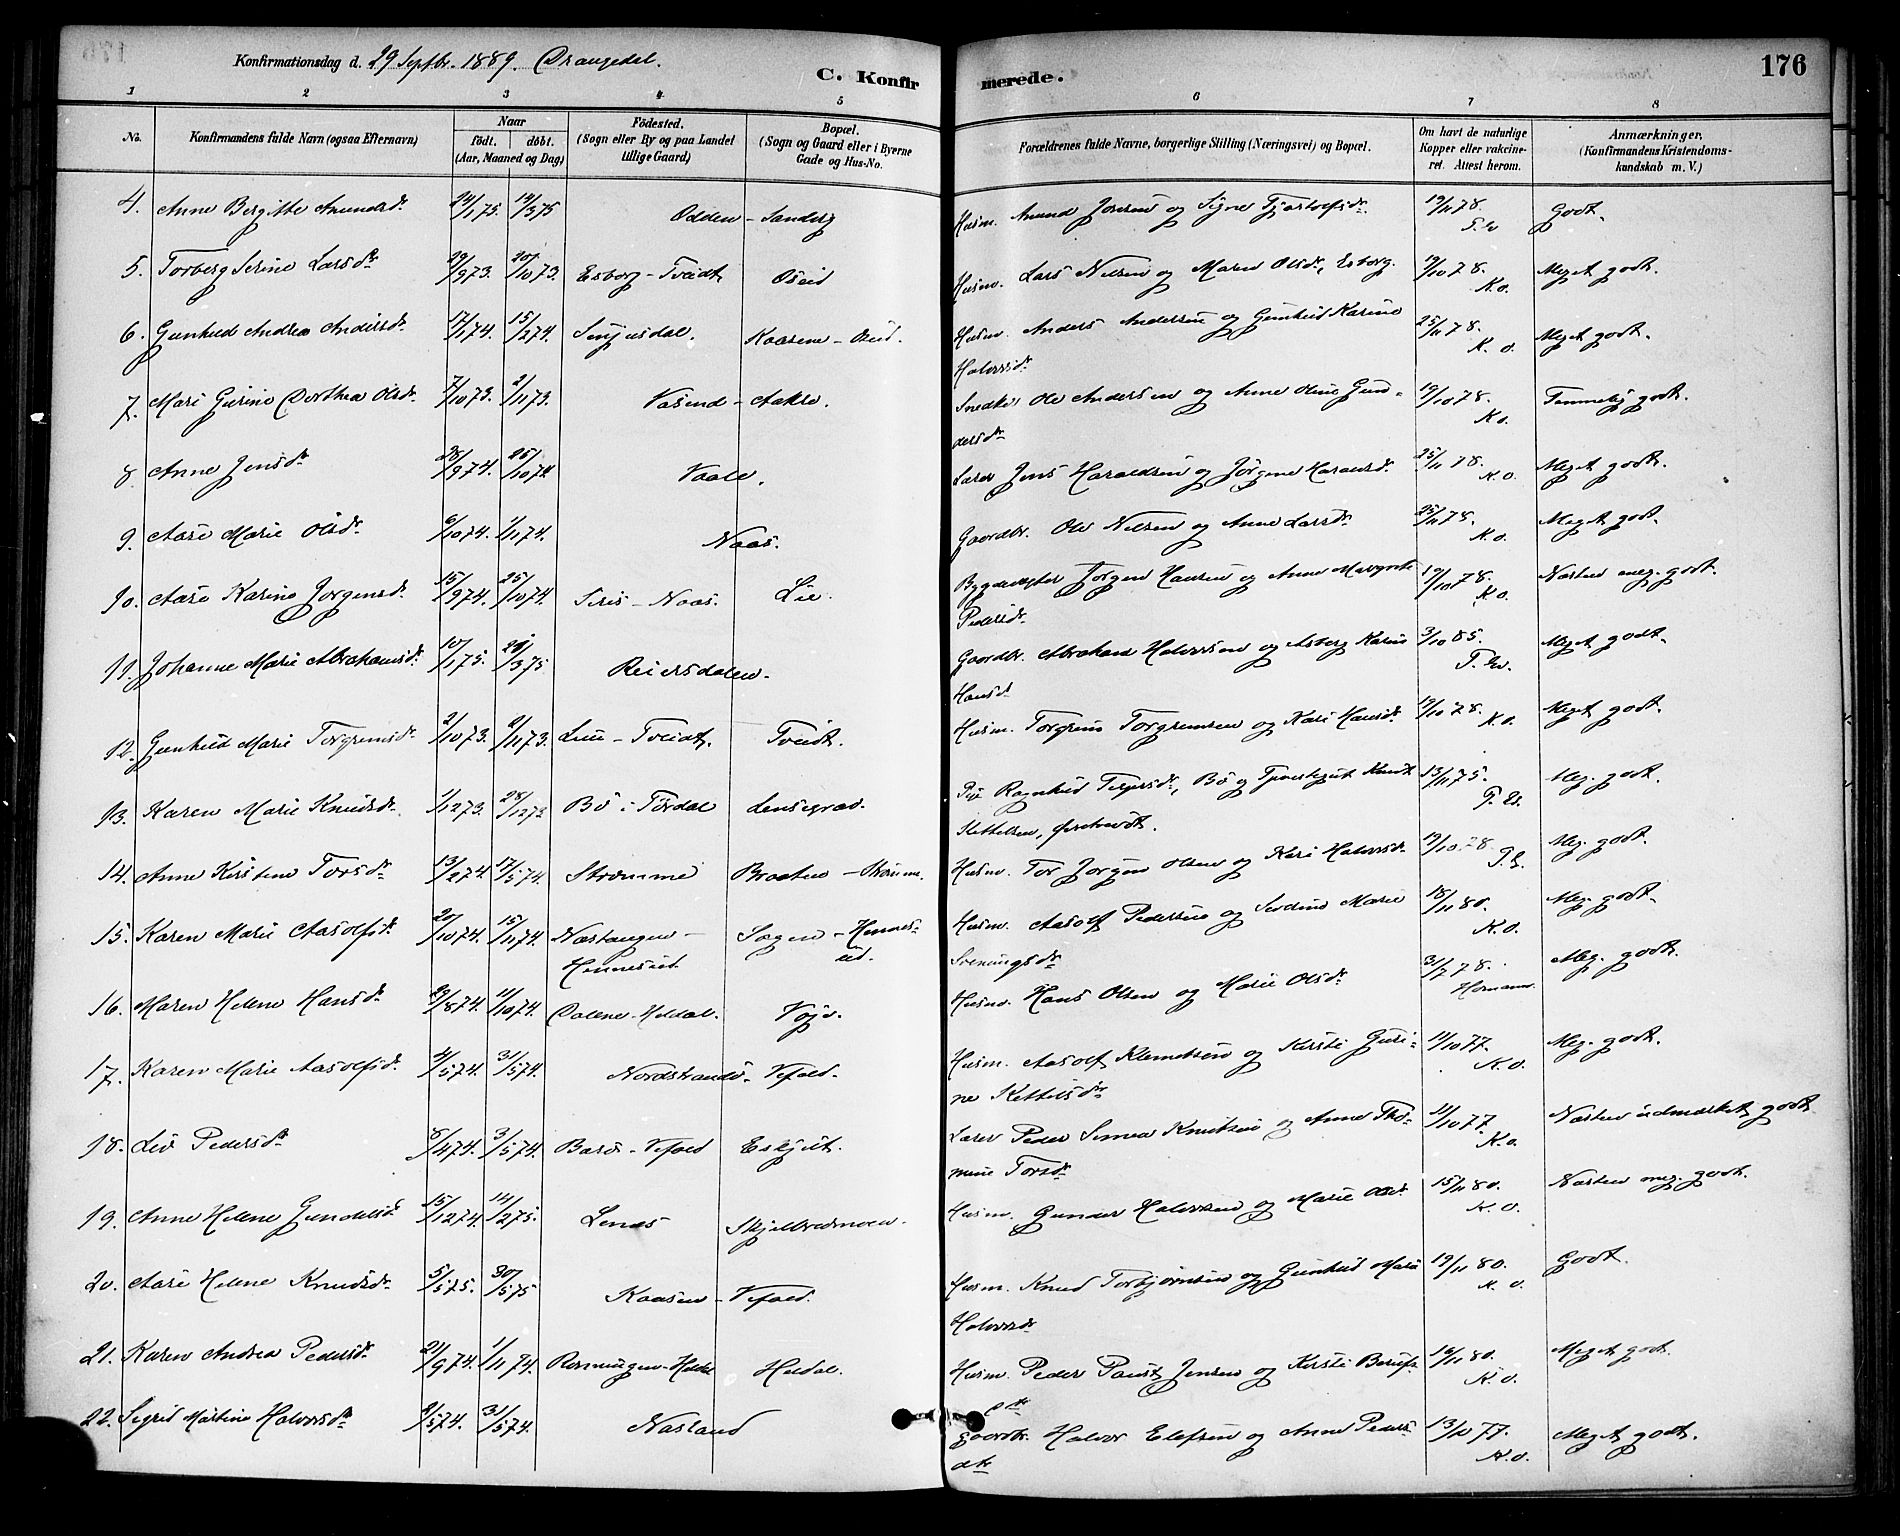 Konfirmationsdag d. 29 Septbr. 1889. Drangedal.
C. Konfirmerede.
176
1 2 3 4 5 6 7 8
No. Konfirmandens fulde Navn (ogsaa Efternavn) Naar født. døbt. (Aar, Maaned og Dag) Fødested. (Sogn eller By og paa Landet tillige Gaard) Bopæl. (Sogn og Gaard eller i Byerne Gade og Hus-No. Forældrenes fulde Navne, borgerlige Stilling (Næringsvei) og Bopæl. Om havt de naturlige Kopper eller vakcineret. Attest herom. Anmærkninger. (Konfirmandens Kristendomskundskab m. V.)
4. Anne Bergitte Amundsdr. 24/1 75. 14/3 75 Odden - Sandvig Husm. Amund Jonsen og Signe Tjostolfsdr. 19/11 78. Godt.
5. Torberg Serine Larsdtr 29/9 73. 20/10 73. Esborg - Tveidt Oseid Husm. Lars Nilsen og Maren Olsdr., Esborg. 19/10 78. K.o. Meget godt.
6. Gunhild Andrea Andersdr. 17/1 74. 15/2 74. Kaasene - Oseid. Husm. Anders Andersen og Gunhild Karine
Halvorsdr. 25/11 78. K. o. Meget godt.
7. Mari Gurine Dorthea Olsdr. 7/10 73. 2/11 73. Vasend - Aakre. Snedker Ole Andersen og Anne Oline Gun-
dersdr 19/10 78. K.o. Temmelig godt.
8. Anne Jensdr 28/9 74. 25/10 74 Vaale. Lærer Jens Haraldsen og Jørgine Hansdr. 25/11 78. K.o. Meget godt.
9. Aase Marie Olsdr. 6/10 74. 1/11 74. Naas. Gaardbr. Ole Nilsen og Anne Larsdr. 25/11 78. K.o. Meget godt.
10. Aase Karine Jørgensdr. 15/9 74. 25/10 74. Naas. Lie. Jørgen Hansen og Anne Margrete
Pedersdr. 19/10 78. K.o. Næsten meg. godt.
11. Johanne Marie Abrahamsdr. 10/1 75. 29/3 75. Reiersdalen. Gaardbr. Abraham Halvorsen og Asberg Karine
Hansdr 3/10 85. Meget godt.
12. Gunhild Marie Torgrimsdr. 2/10 73. 2/11 73. Tveidt. Tveidt. Husm. Torgrim Torgrimsen og Kari Hansdr. 19/10 78. K.o. Meget godt.
13. Karen Marie Knudsdr. 1/12 73. 28/12 73 Bø i Tørdal Lensegrav. Pige Ragnhild Teljersdr., Bø og Knud
Kettelsen, 13/11 75. Meg. godt.
14. Anne Kirstine Torsdr. 13/2 74. 17/5 74. Strømme Braaten - Strømme. Husm. Tor Jørgen Olsen og Kari Halvorsdr. 19/10 78. Meg. godt.
15. Karen Marie Aasolfsdr. 20/10 74. 15/11 74. Næstangen -
Henneseid. Henneseid. Husm. Aasolf Pedersen og Marie
Sveinungsdr 18/11 80. K.o. Meg. godt.
16. Maren Helene Hansdr. 29/8 74. 11/10 74. Dalene - Heldal. Husm. Hans Olsen og Marie Olsdr. 31/7 78. Homann. Meg. godt.
17. Karen Marie Aasolfsdr. 4/5 74. 31/5 74. Nordstrand - Vefald. Husm. Aasolf Klemetsen og Kirsti Guri-
ne Kettilsdr 11/10 77. K.o. Meg. godt.
18. Liv Pedersdr 8/4 74. 3/5 74. Vefald Eskjelt. Lærer Peder Simen Knudsen og Anne Tho-
mine Torsdr 11/10 77. K.o. Næsten udmærket godt
19. Anne Helene Gundersdr 15/12 74. 14/2 75. Lenes Skjelbredmoen. Husm. Gunder Halvorsen og Marie Olsdr. 15/11 80. K.o. Næsten meg. godt.
20. Aase Helene Knudsdr. 5/5 75. 30/5 75 Kaasen - Vefald. Husm. Knud Torbjørnsen og Gunhild Marie
Halvorsdr 19/11 80. K.o. Godt.
21. Karen Andrea Pedersdr. 21/9 74. 1/11 74. Rønningen - Heldal Heldal. Husm. Peder Paust Jensen og Kirsti 16/11 80. K.o. Meget godt.
22. Sigrid Martine Halvorsdr. 9/5 74. 31/5 74. Næsland Gaardbr. Halvor Elefsen og Anne Peders
dtr 13/10 77. K.o. Meget godt.